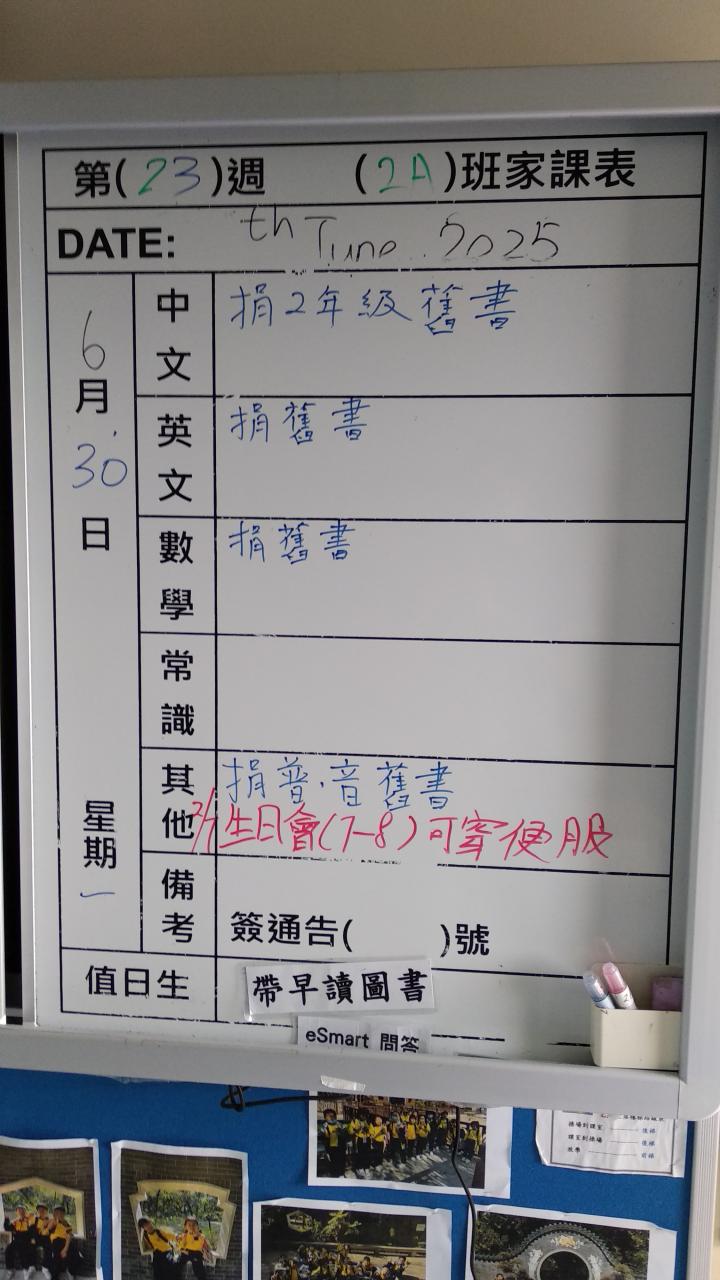 第(23)週 (2A)班家課表
DATE: th June 2025
6月30日
星期一
中文
捐2年級舊書
英文
捐舊書
數學
捐舊書
常識
其他
捐普.音舊書
2/7生日會(7-8)可穿便服
備考
簽通告( )號
值日生
帶早讀圖書
eSmart 問答
操場到課室
課室到操場
放學